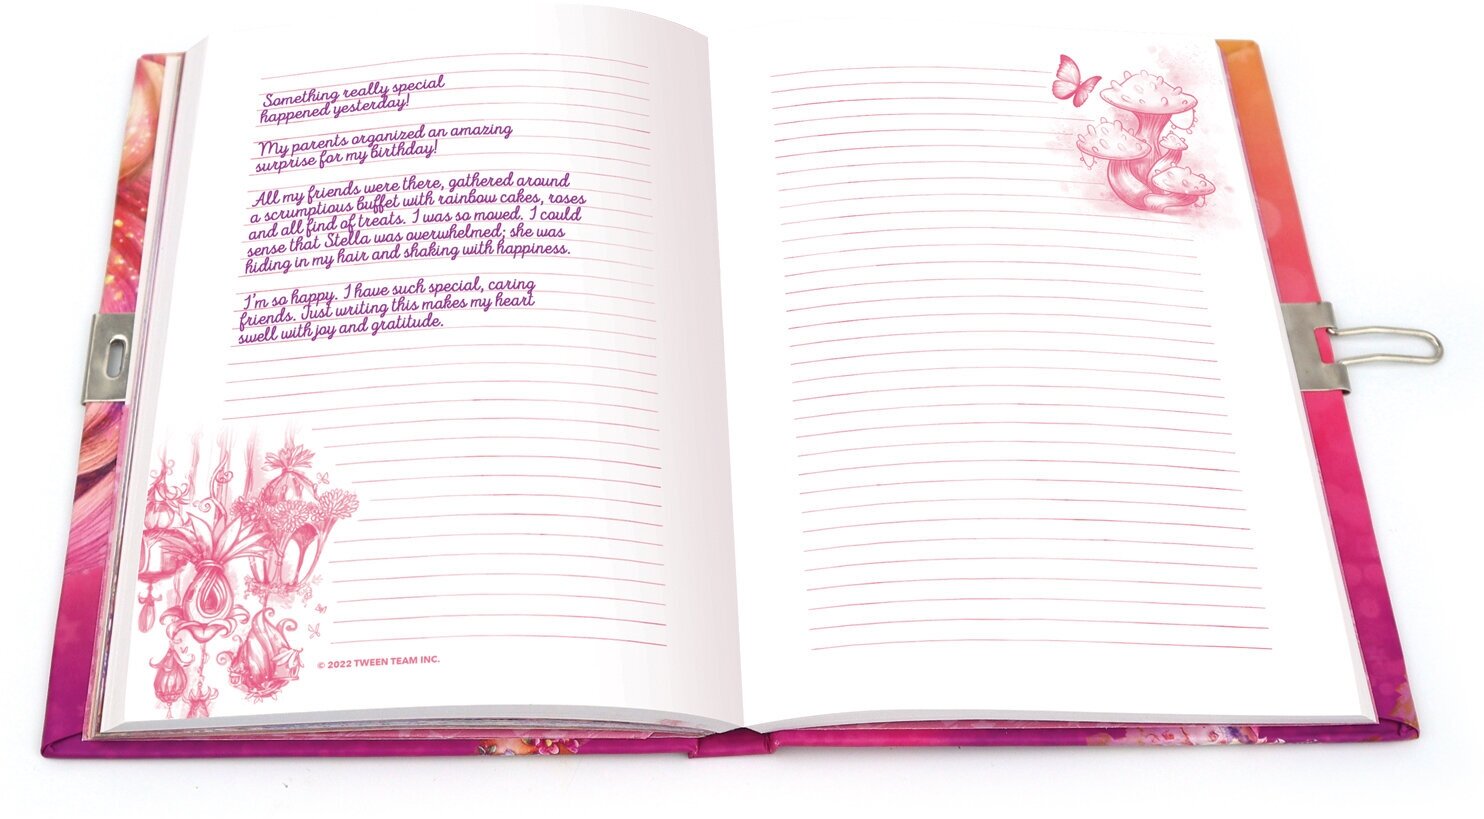 Something really special
happened yesterday!
My parents organized an amazing
surprise for my birthday!
All my friends were there, gathered around
a scrumptious buffet with rainbow cakes, roses
and all find of treats. I was so moved. I could
sense that Stella was overwhelmed; she was
hiding in my hair and shaking with happiness.
I'm so happy. I have such special, caring
friends. Just writing this makes my heart
swell with joy and gratitude.
© 2022 TWEEN TEAM INC.